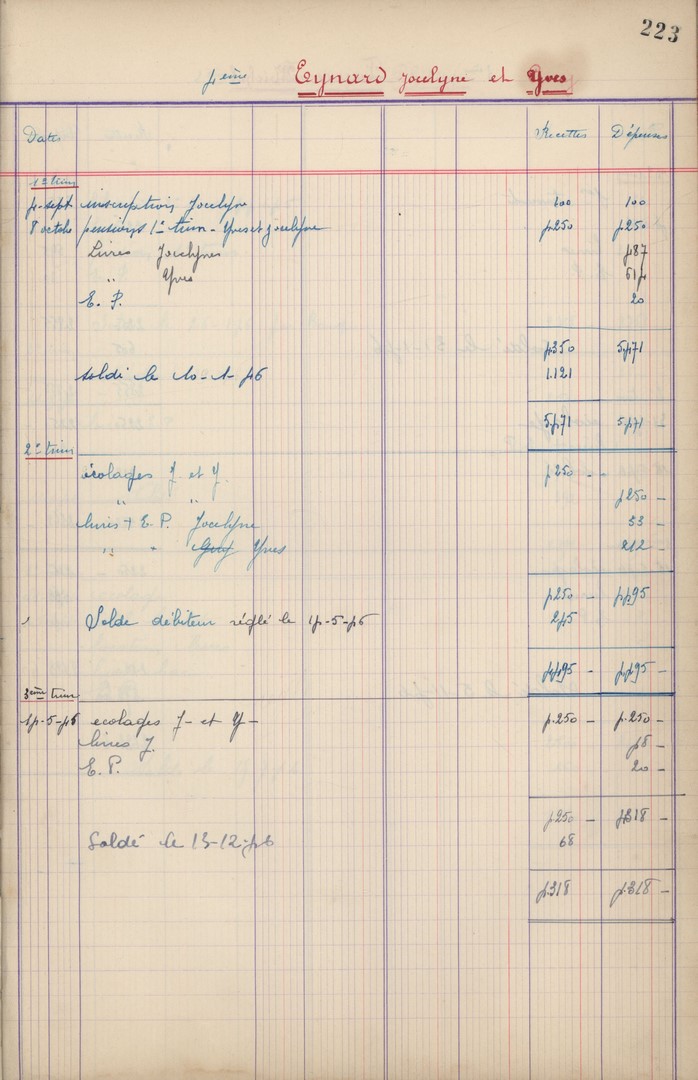 223
4ème Eynard Jocelyne et Yves
Dates Recettes Dépenses
1er trim
4 sept inscription Jocelyne 100 100
8 octobre pensions 1er trim - Yves et Jocelyne 4250 4250
Livres Jocelyne 487
" Yves 614
E. P. 20
4350 5471
soldé le 10-1-46 1.121
5471 5471 -
2e trim
écolages J et Y. 4250 -
" " 4250 -
livres + E. P. Jocelyne 33 -
" + Guy Yves 212 -
4250 - 4495
Solde débiteur réglé le 14-5-46 245
4495 - 4495 -
3ème trim
14-5-46 ecolages J - et Y - 4.250 - 4.250 -
livres J. 48 -
E. P. 20 -
4250 - 4318 -
Soldé le 13-12-46 68
4.318 4.318 -